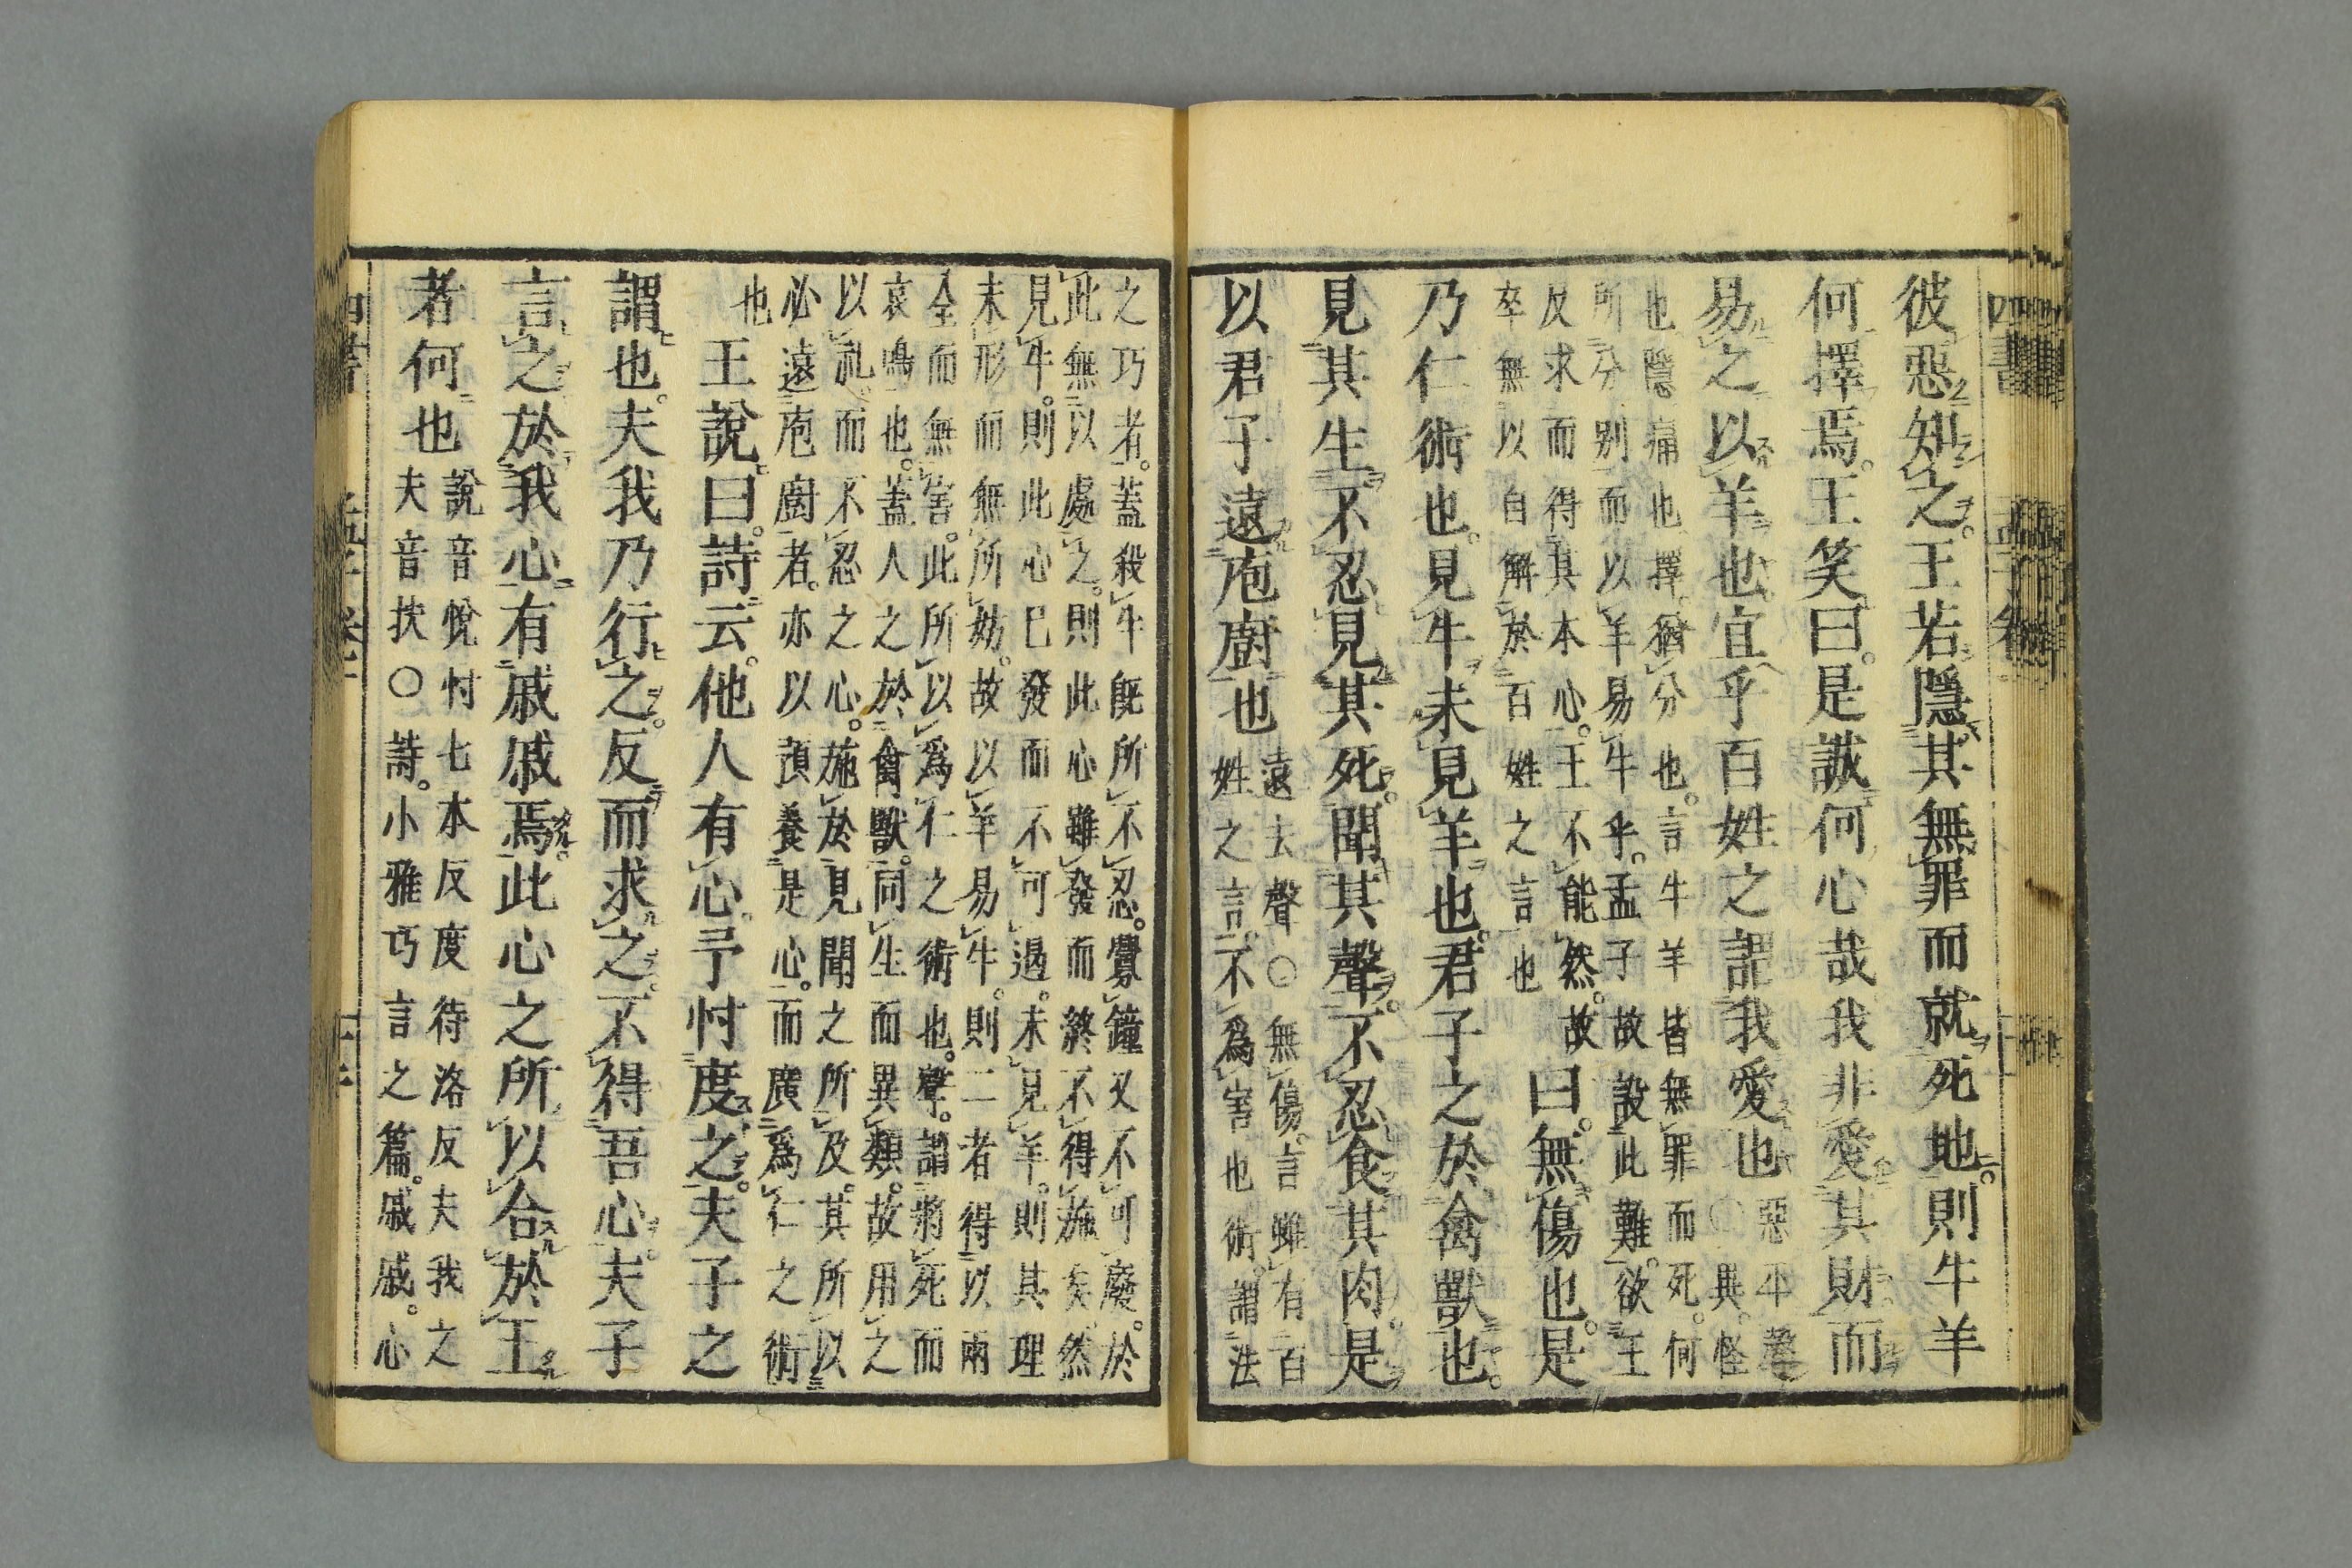 彼惡知之。王若隱其無罪而就死地。則牛羊
何擇焉。王笑曰。是誠何心哉我非愛其財而
易之以羊也。宜乎百姓之謂我愛也
惡平聲
〇異。怪
也隱痛也擇。猶分也。言牛羊皆無罪而死。何
所分別而以羊易牛乎。孟子故設此難。欲王
反求而得其本心。王不能然。故
卒無以自解於百姓之言也
曰。無傷也。是
乃仁術也。見牛未見羊也。君子之於禽獸也。
見其生不忍見其死。聞其聲。不忍食其肉。是
以君子遠庖廚也
遠去聲〇無傷。言雖有百
姓之言。不爲害也術。謂法
之巧者。蓋殺牛旣所不忍。釁鐘又不可廢。於
此無以處之。則此心雖發而終不得施矣。然
見牛。則此心已發而不可遏。未見羊。則其理
未形而無所妨。故以羊易牛。則二者得以兩
全而無害。此所以爲仁之術也。聲。謂將死而
哀鳴也。蓋人之於禽獸。同生而異類。故用之
以禮。而不忍之心。施於見聞之所及。其所以
必遠庖廚者。亦以預養是心。而廣爲仁之術
也
王說。曰。詩云。他人有心予忖度之。夫子之
謂也。夫我乃行之。反而求之。不得吾心。夫子
言之於我心有戚戚焉。此心之所以合於王
者何也
說音悅忖七本反度待洛反夫我之
夫音扶〇詩。小雅巧言之篇。戚戚。心